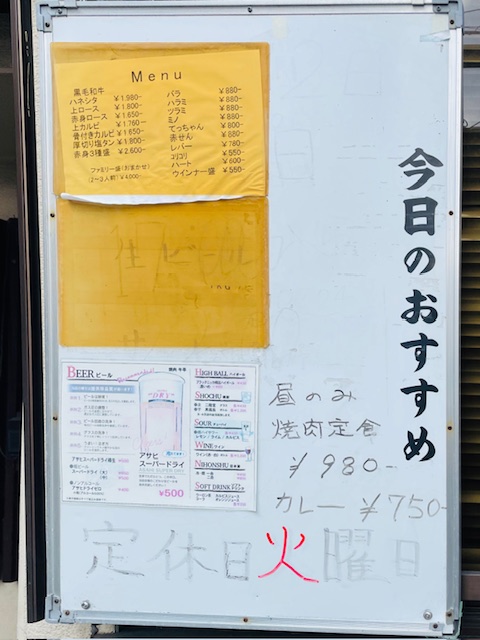 今日のおすすめ
Menu
黒毛和牛
ハネシタ ¥1,980-
上ロース ¥1,800-
赤身ロース ¥1,650-
上カルビ ¥1,760-
骨付きカルビ ¥1,650
厚切り塩タン ¥1,800-
赤身3種盛 ¥2,600-
ファミリー盛(おまかせ)
(2〜3人前) ¥4,000
バラ ¥880-
ハラミ ¥880-
ツラミ ¥880-
ミノ ¥880-
てっちゃん ¥800-
赤せん ¥880-
レバー ¥780-
コリコリ ¥550-
ハート ¥600-
ウインナー盛 ¥550-
生ビール
BEER ビール
アサヒ
スーパードライ
¥500
HIGH BALL ハイボール
SHOCHU 焼酎
SOUR チューハイ
WINE ワイン
NIHONSHU 日本酒
SOFT DRINK
昼のみ
焼肉定食
¥980-
カレー ¥750-
定休日 火曜日